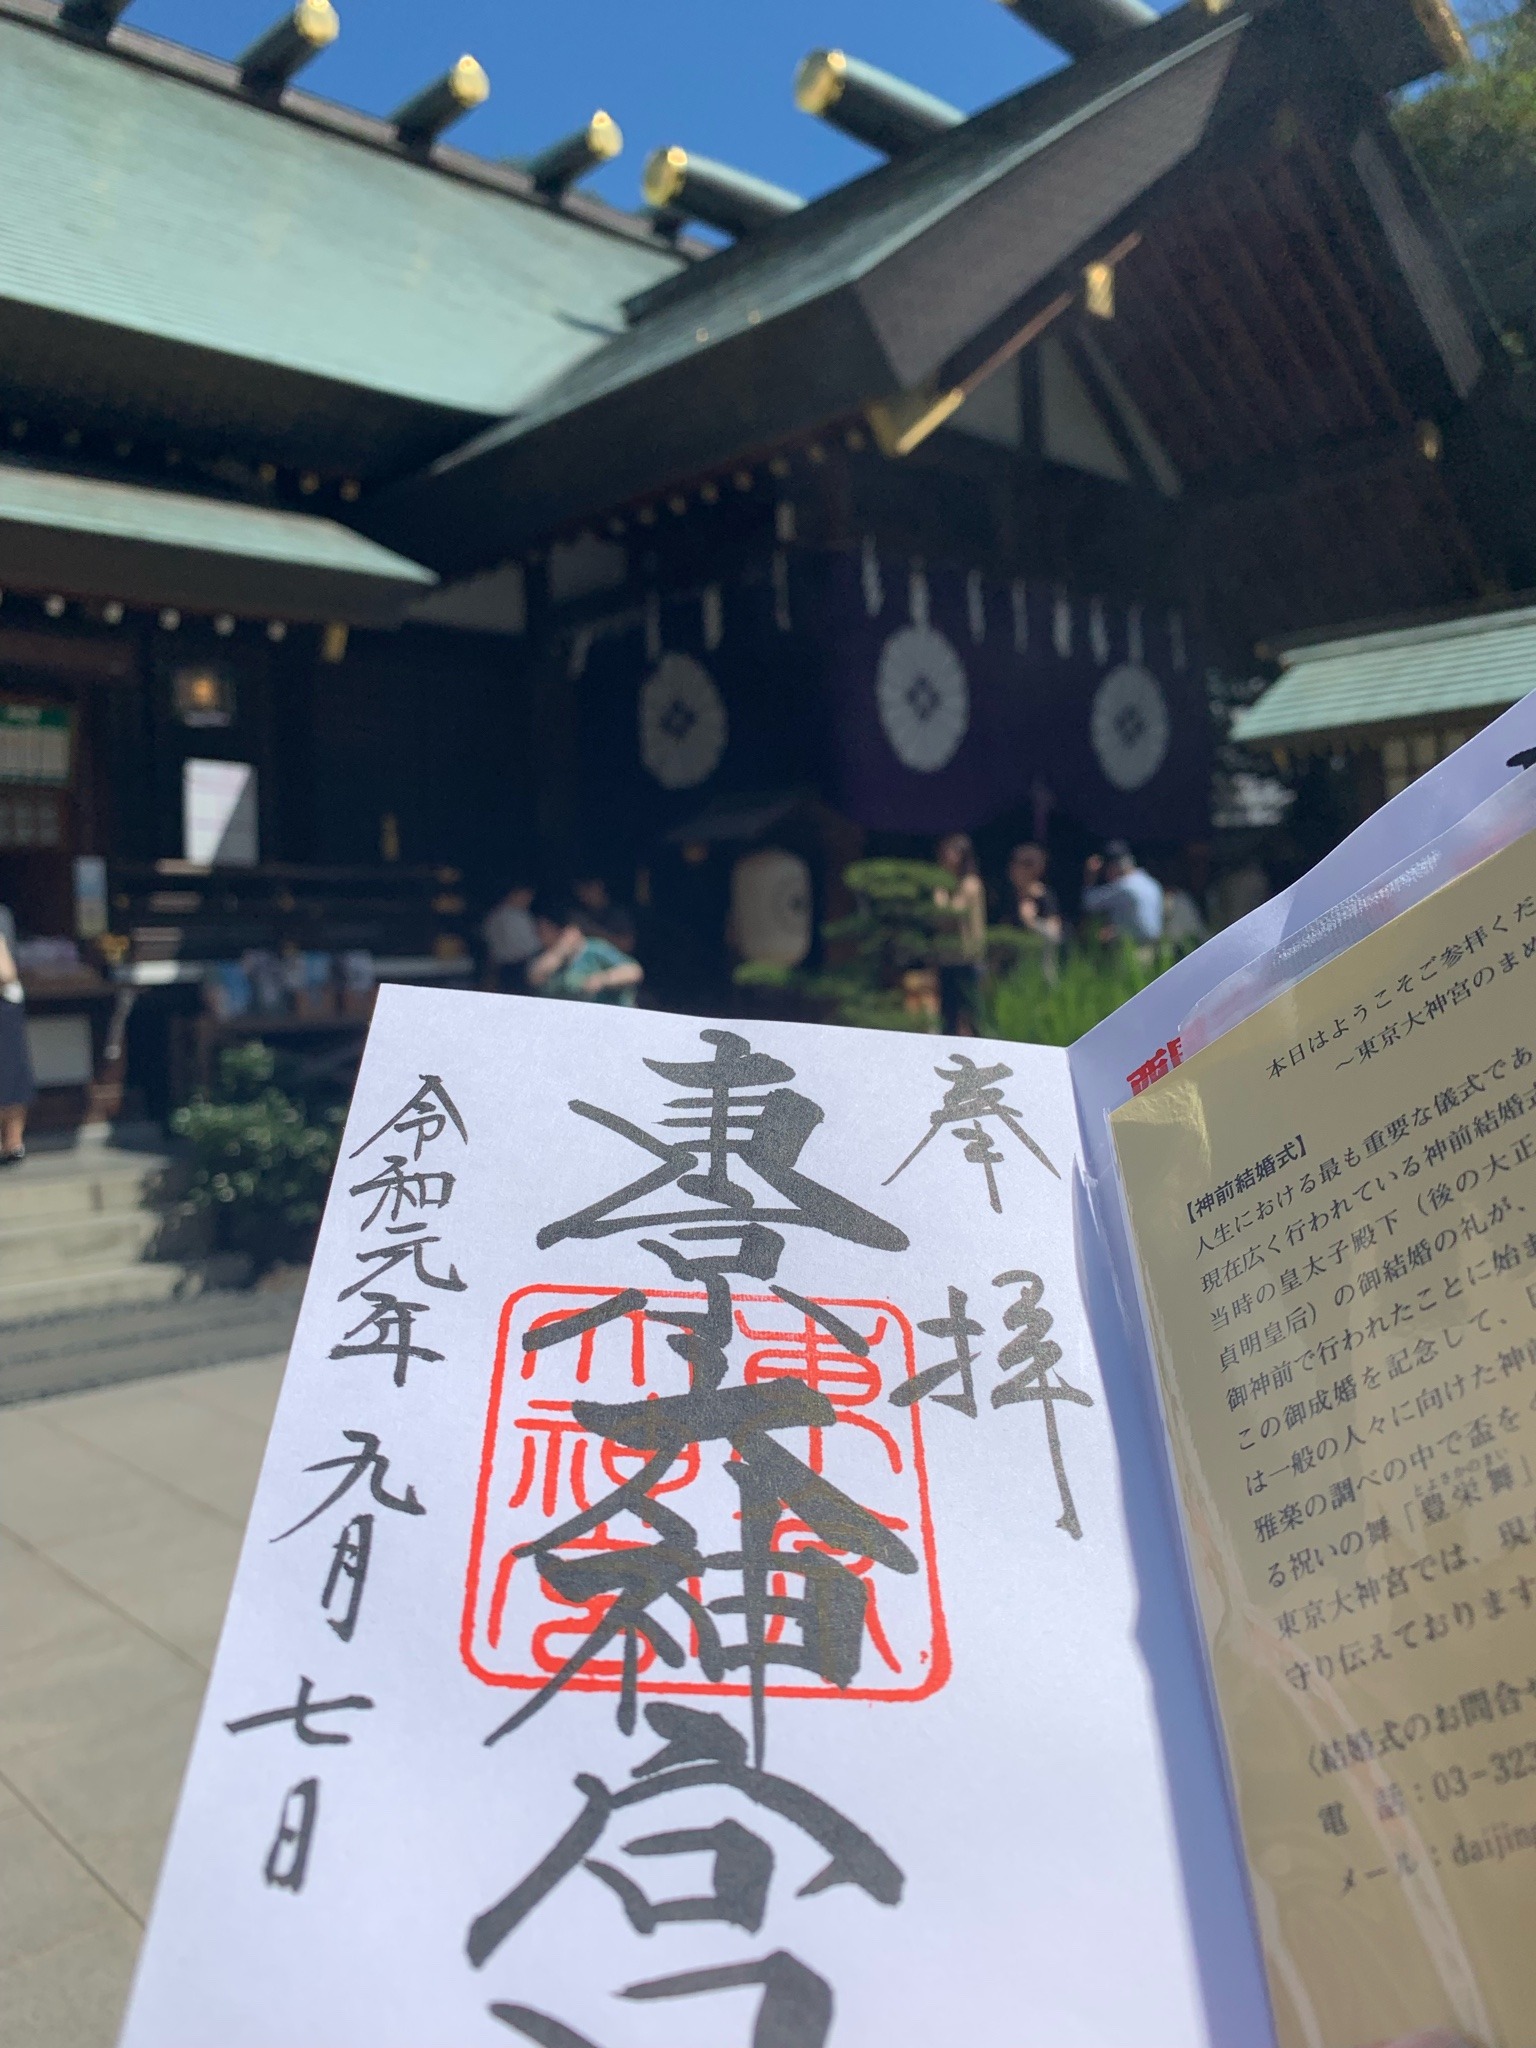 奉拝
東京大神宮
令和元年九月七日
東京大神宮
本日はようこそご参拝くだ
～東京大神宮のまめ
【神前結婚式】
人生における最も重要な儀式であ
現在広く行われている神前結婚式
当時の皇太子殿下（後の大正
貞明皇后）の御結婚の礼が、
御神前で行われたことに始ま
この御成婚を記念して、
は一般の人々に向けた神前
雅楽の調べの中で盃を
る祝いの舞「豊栄舞」
東京大神宮では、現
守り伝えております
〈結婚式のお問合せ
電話：03-322
メール：daijing